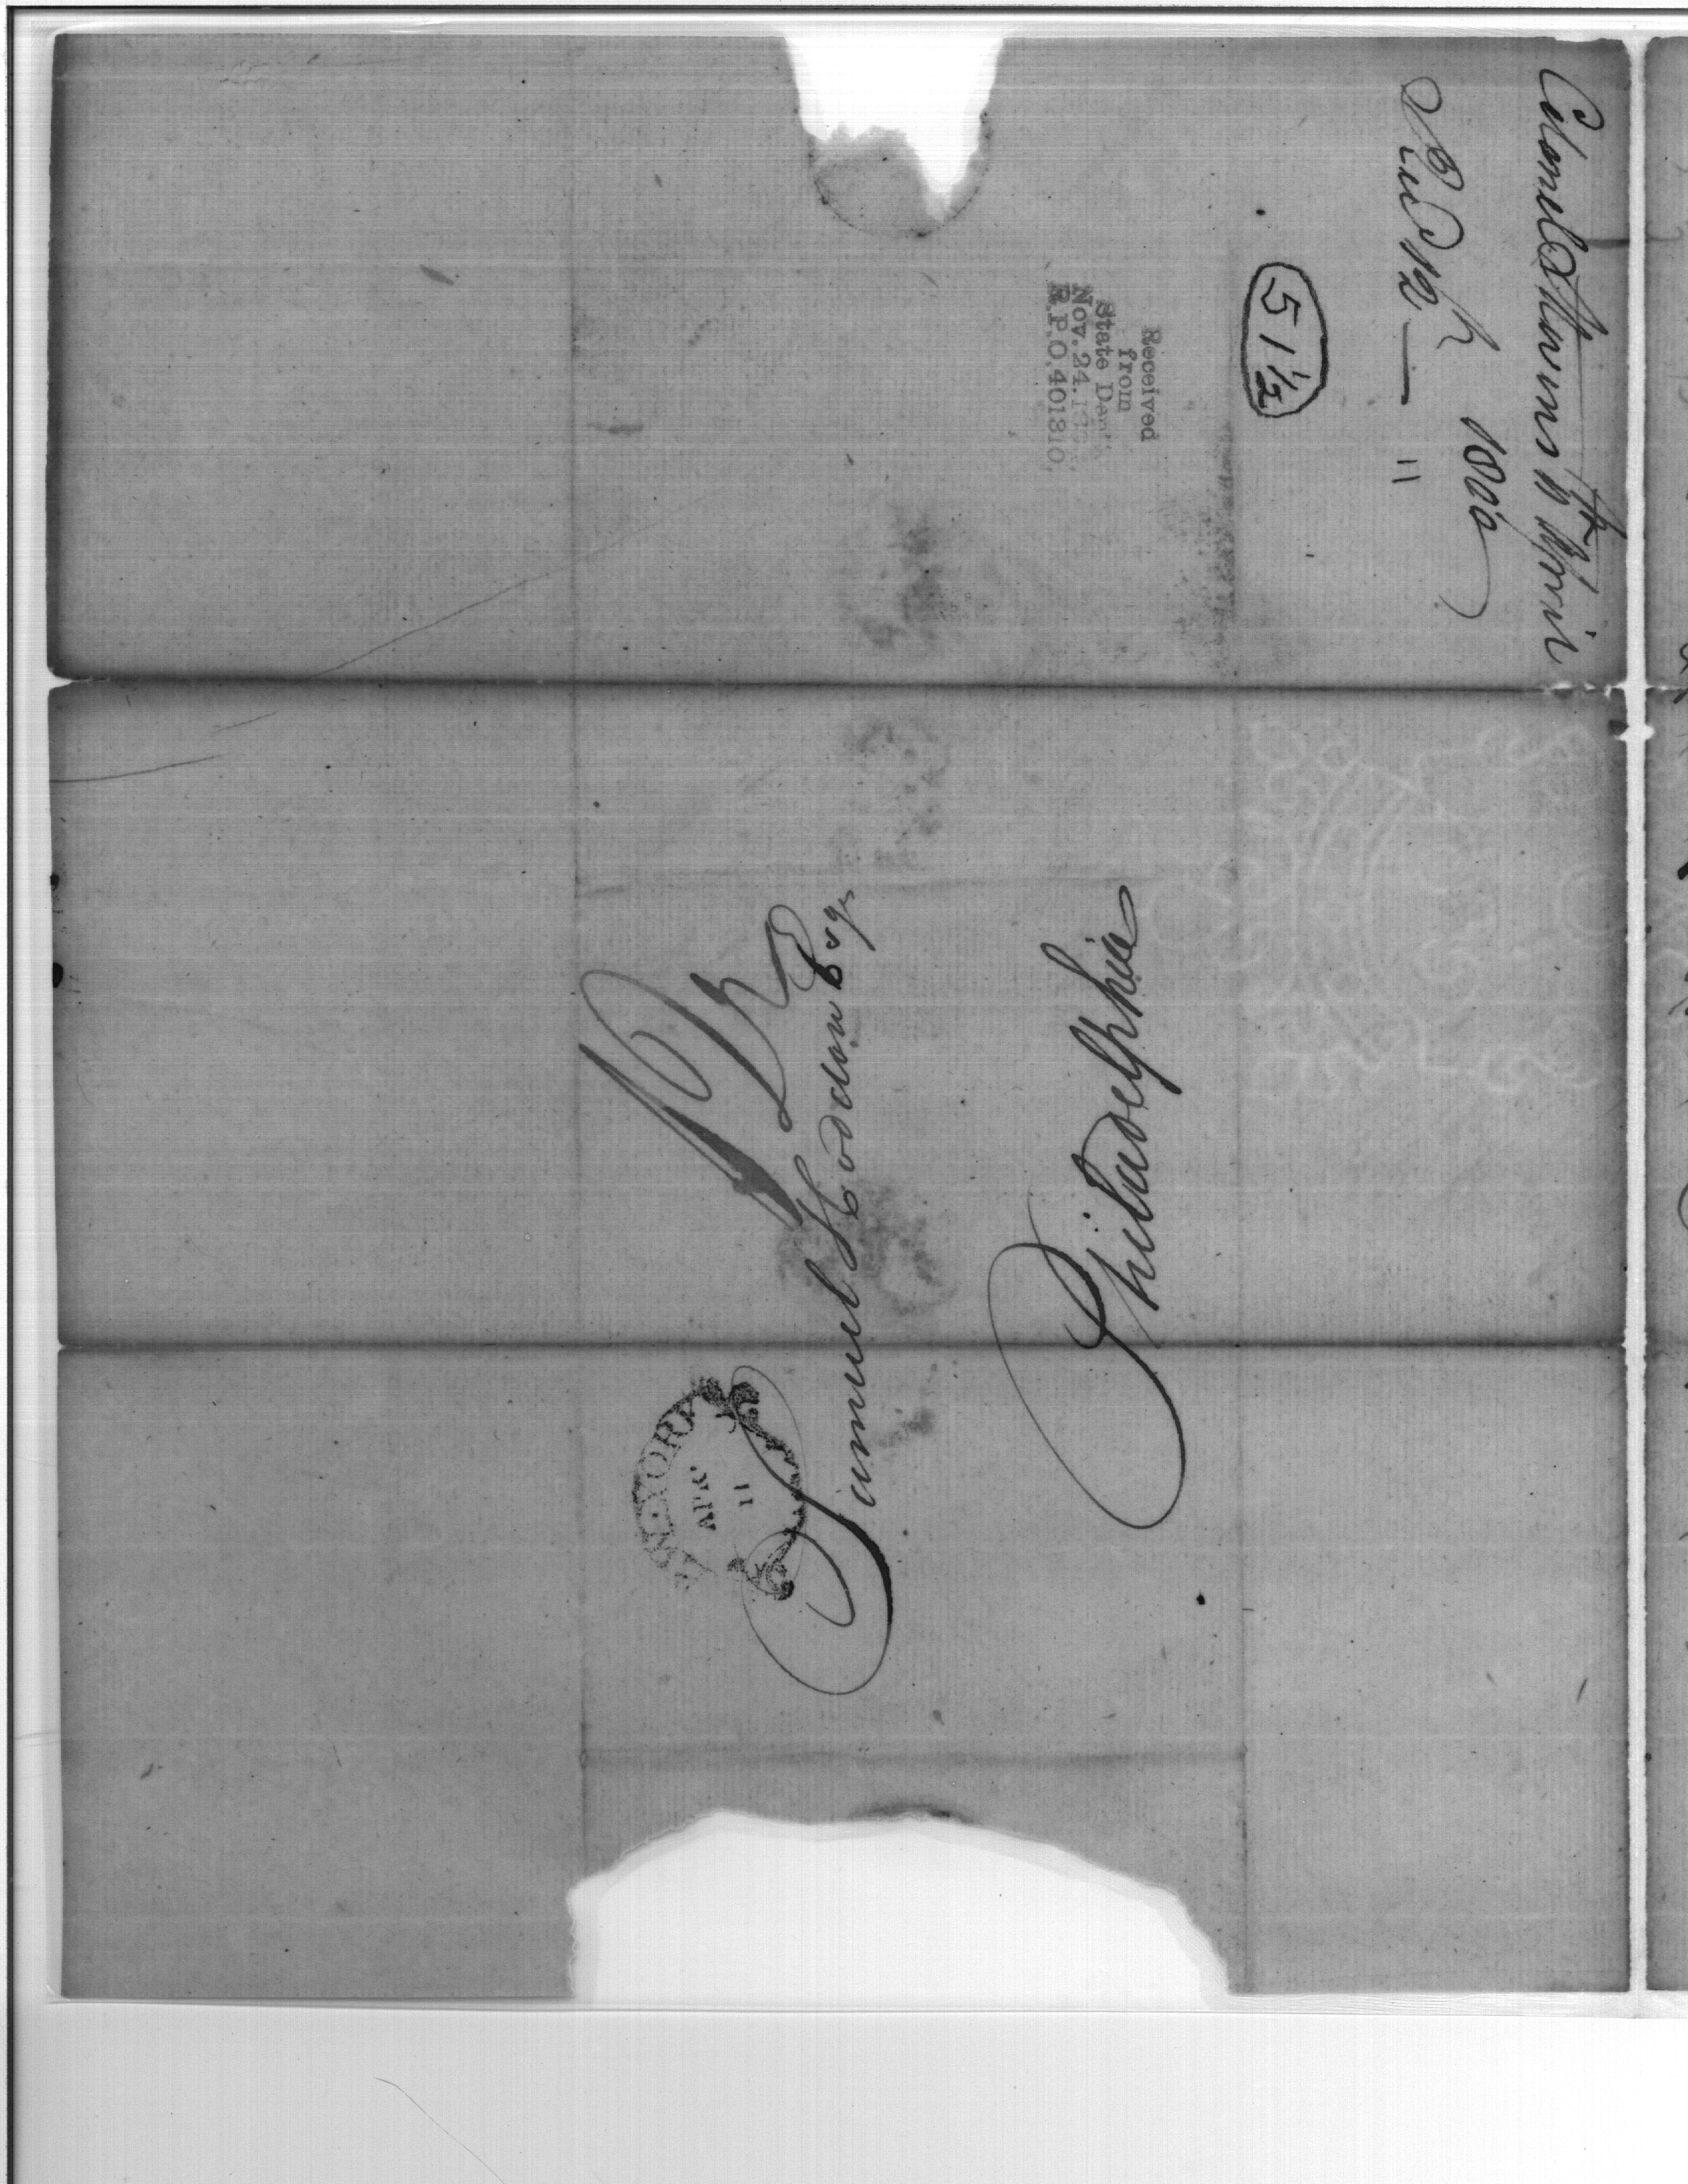 Colonel Stevens 10th April
1800
Recd 12th — "
51½
Received
from
State Dept.
Nov. 24.
R.P.O. 401810.
N. YORK
APR.
11
Samuel Hodgdon Esqr
Philadelphia